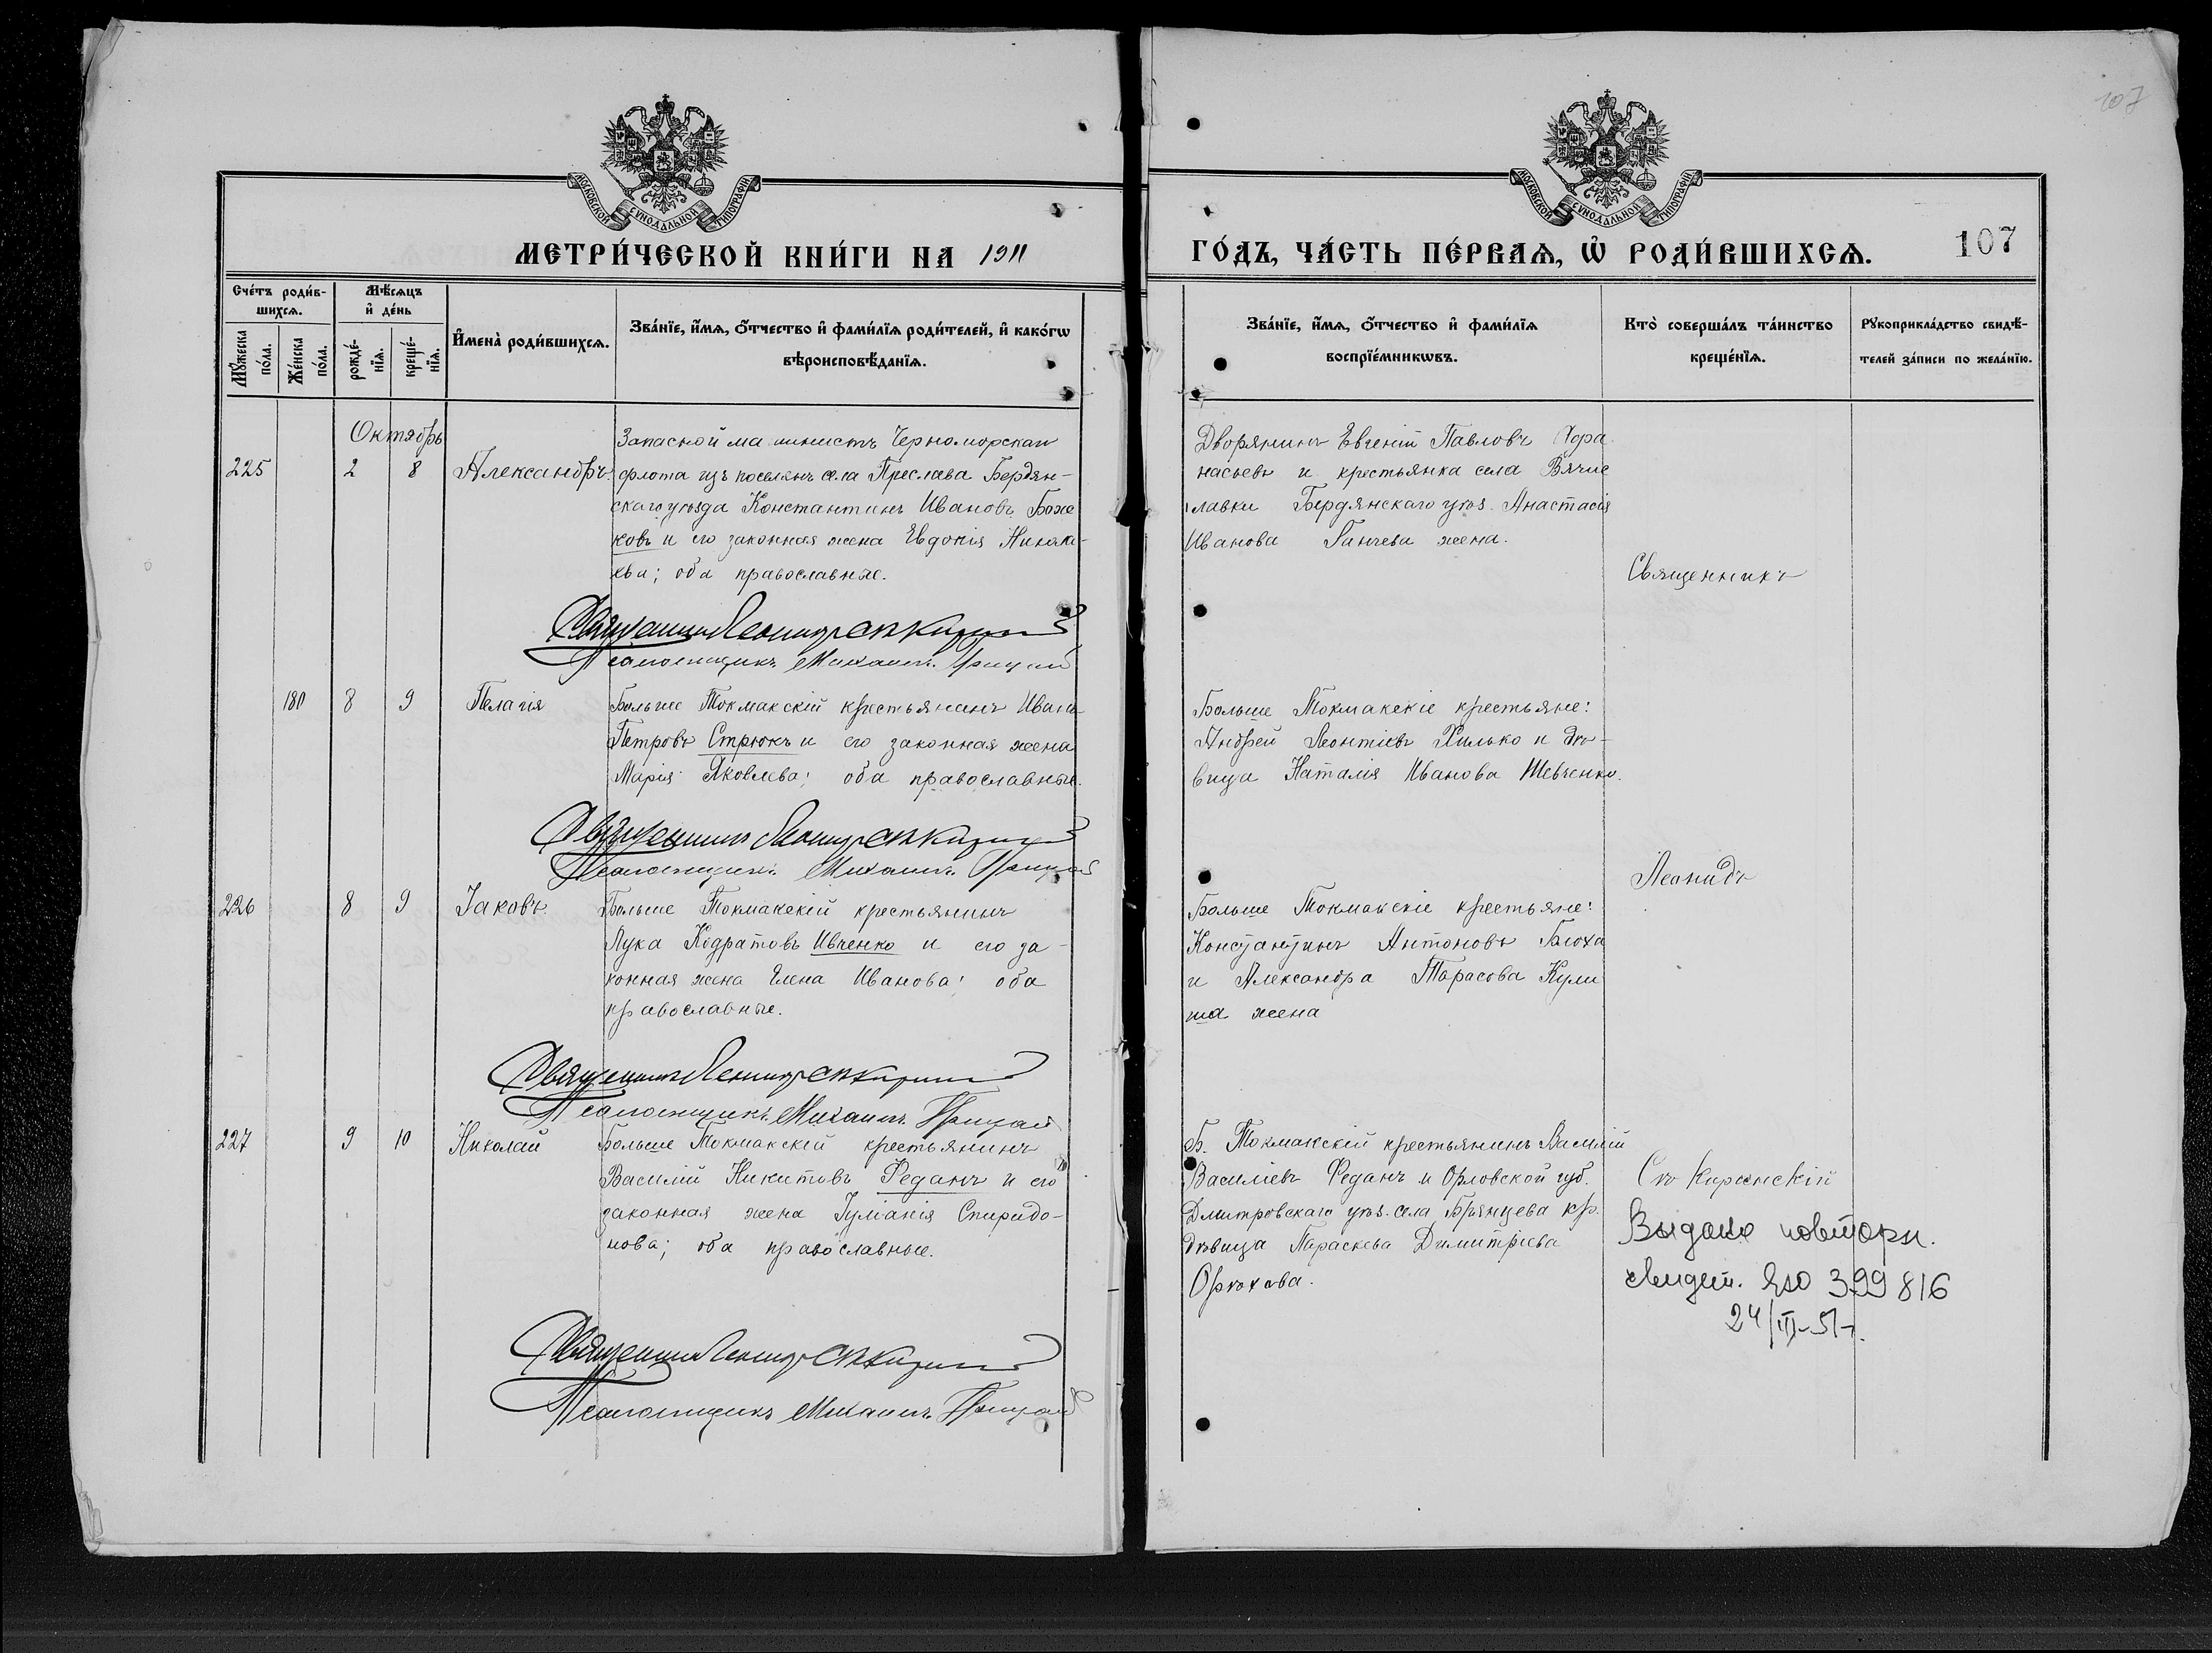 107
МОСКОВСКОЙ СѴНОДАЛЬНОЙ ТИПОГРАФІИ
МОСКОВСКОЙ СѴНОДАЛЬНОЙ ТИПОГРАФІИ
МЕТРИ́ЧЕСКОЙ КНИ́ГИ НА 1911
ГО́ДЪ, ЧА́СТЬ ПЕ́РВАѦ, Ѡ҆ РОДИ́ВШИХСѦ.
107
Сче́тъ роди́в-
шихсѧ.
Мѣ́сѧцъ
и҆ де́нь
Мꙋ́жеска
по́ла.
Же́нска
по́ла.
рожде́-
нїѧ.
креще́-
нїѧ.
И҆мена̀ роди́вшихсѧ.
Зва́нїе, и҆́мѧ, ѻ҆́тчество и҆ фами́лїѧ роди́телей, и҆ како́гѡ
вѣроисповѣ́данїѧ.
Зва́нїе, и҆́мѧ, ѻ҆́тчество и҆ фами́лїѧ
воспрїе́мникѡвъ.
Кто̀ соверша́лъ та́инство
креще́нїѧ.
Рꙋкоприкла́дство свидѣ́-
телей за́писи по жела́нїю.
Октябрь
225 2 8 Александръ.
Запасной машинистъ Черноморскаго
флота изъ поселянъ села Преслава Бердян-
скаго уѣзда Константинъ Ивановъ Боже
ковъ и его законная жена Евдокія Никола-
ева; оба православные.
Священникъ Леонидъ Скирскій
Псаломщикъ Михаилъ
Дворянинъ Евгеній Павловъ Афа
насьевъ и крестьянка села Вячес
лавки Бердянскаго уѣз. Анастасія
Иванова Ганчева жена.
Священникъ
180 8 9 Пелагія
Больше Токмакскій крестьянинъ Иванъ
Петровъ Стрюкъ и его законная жена
Марія Яковлева; оба православные.
Священникъ Леонидъ
Псаломщикъ Михаилъ
Больше Токмакскіе крестьяне:
Андрей Леонтіевъ Хилько и дѣ-
вица Наталія Иванова Шевченко.
Леонидъ
226 8 9 Іаковъ
Больше Токмакскій крестьянинъ
Лука Кодратовъ Ивченко и его за-
конная жена Елена Иванова; оба
православные.
Священникъ Леонидъ
Псаломщикъ Михаилъ
Больше Токмакскіе крестьяне:
Константинъ Антоновъ Блоха
и Александра Тарасова Кули
ша жена
227 9 10 Николай
Больше Токмакскій крестьянинъ
Василій Никитовъ Феданъ и его
законная жена Іуліанія Спиридо-
нова; оба православные.
Священникъ Леонидъ
Псаломщикъ Михаилъ
Б. Токмакскій крестьянинъ Василій
Василіевъ Феданъ и Орловской губ.
Дмитровскаго уѣз. села Брянцева кр.
дѣвица Параскева Димитріева
Орѣхова.
Выдано повторн.
свидет. ЯЮ 399816
24/III-51 г.